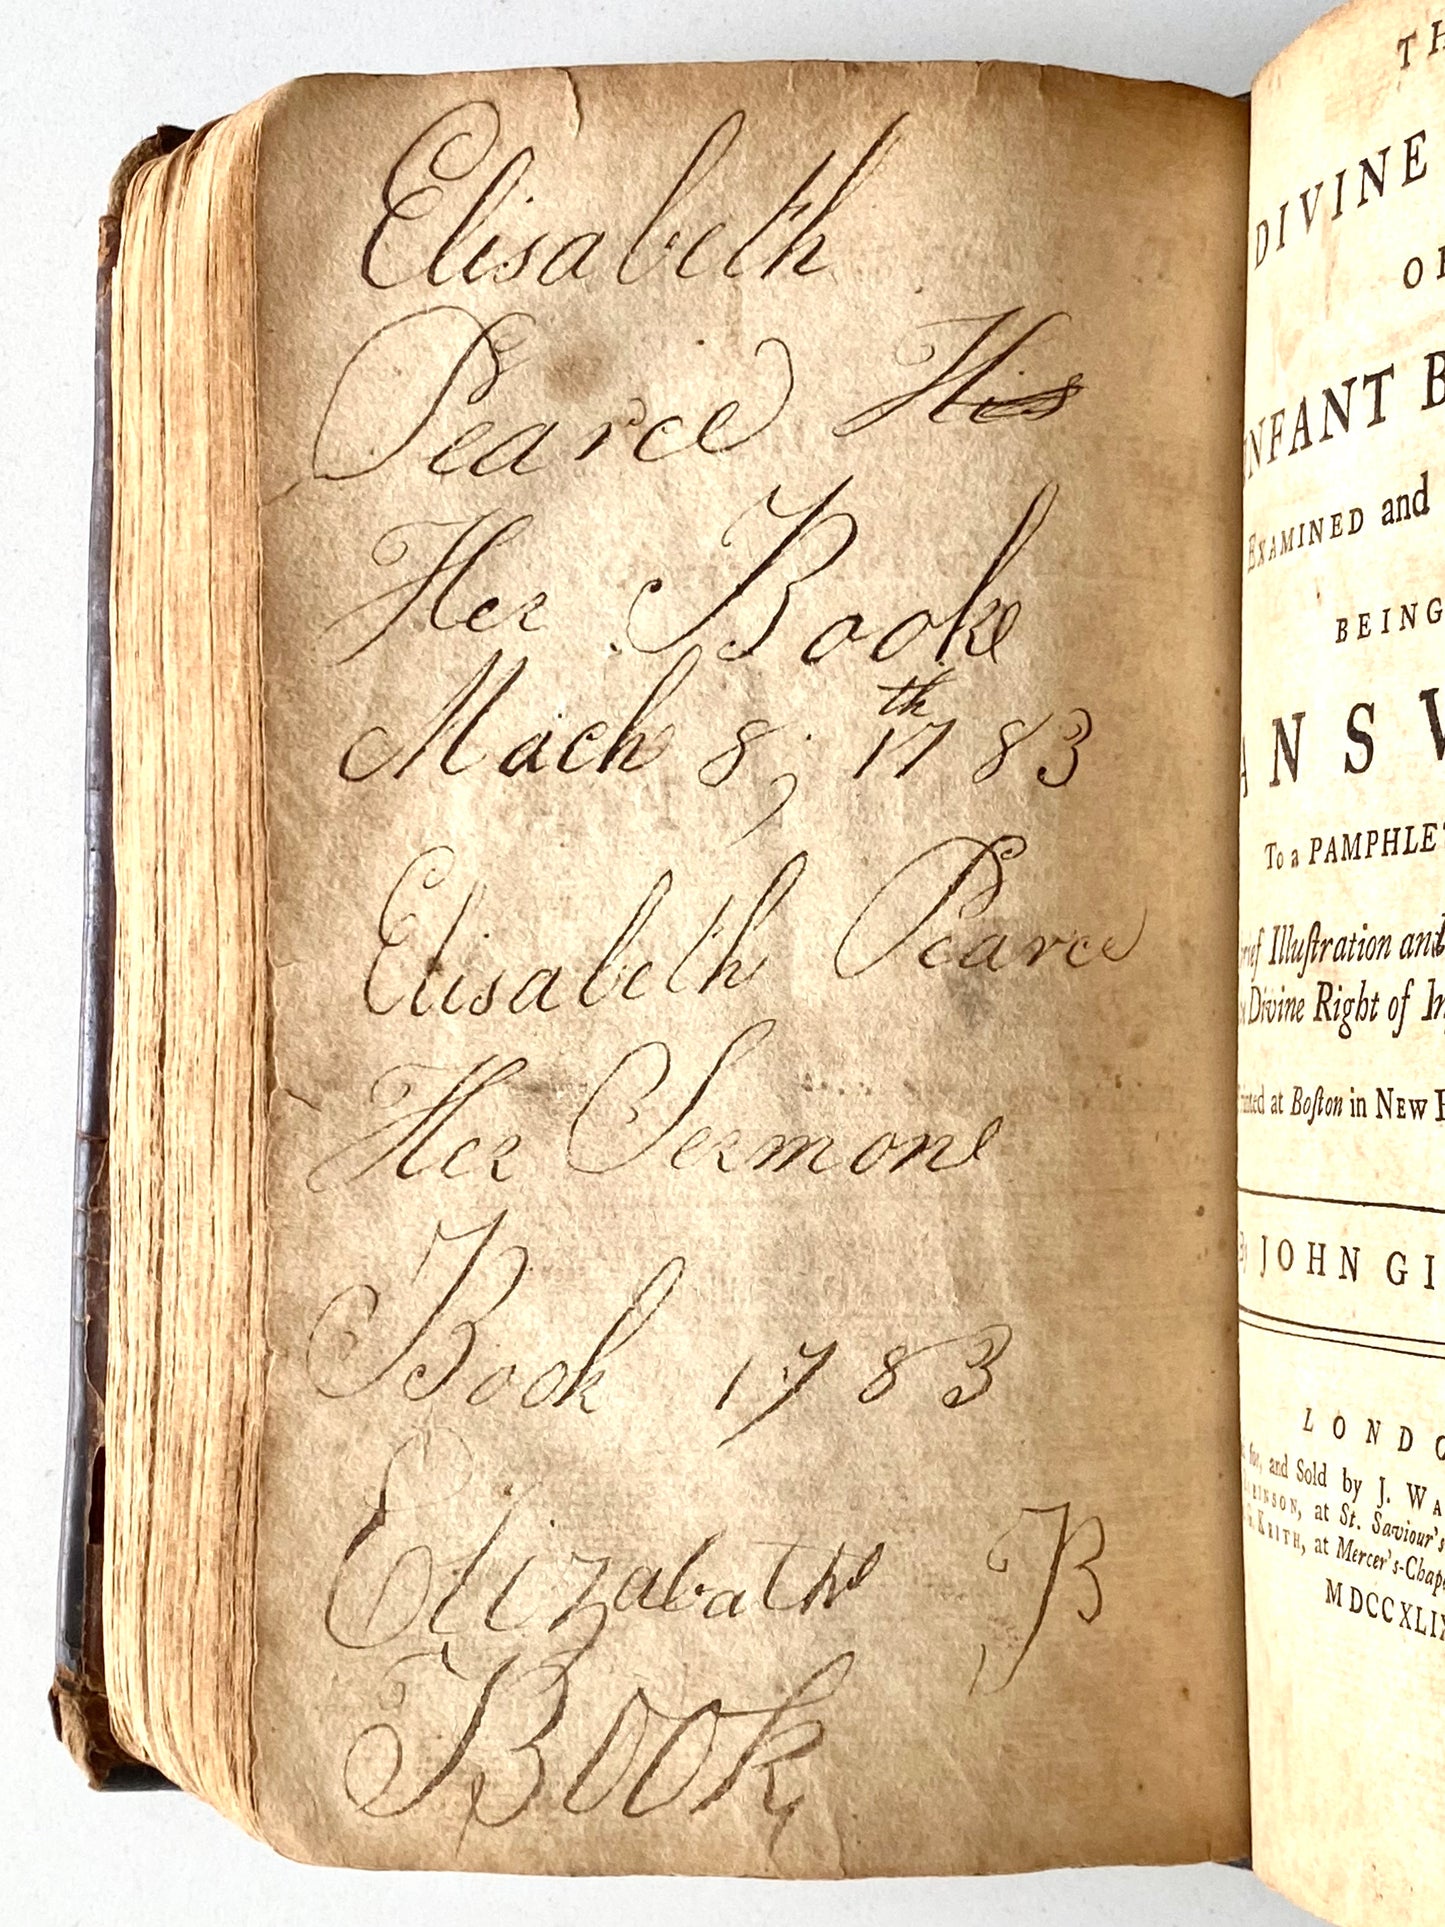 Elisabeth
Pearce His
Her Booke
Mach 8, th 1783
Elisabeth Pearce
Her Sermone
Book 1783
Elizabathe B
Book
TH
DIVINE
OF
INFANT B
EXAMINED and
BEING
ANSW
To a PAMPHLET
rief Illustration and
Divine Right of In
rinted at Boston in NEW
By JOHN GI
LONDO
for, and Sold by J. WA
at St. Saviour's
KEITH, at Mercer's-Chape
MDCCXLIX